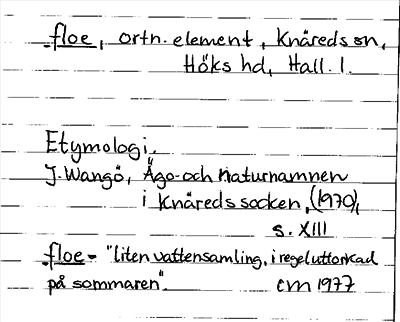 -floe, ortn. element, Knäreds sn,
Höks hd, Hall. l.
Etymologi.
J. Wangö, Ägo- och naturnamnen
i Knäreds socken, (1970),
s. XIII
-floe = "liten vattensamling, i regel uttorkad
på sommaren".
cm 1977